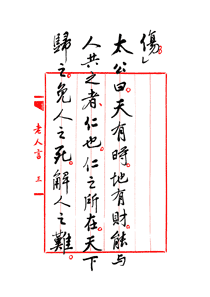 傷」
太公曰。天有時。地有財。能与
人共之者、仁也。仁之所在。天下
歸之。免人之死。解人之難。
老人言 三